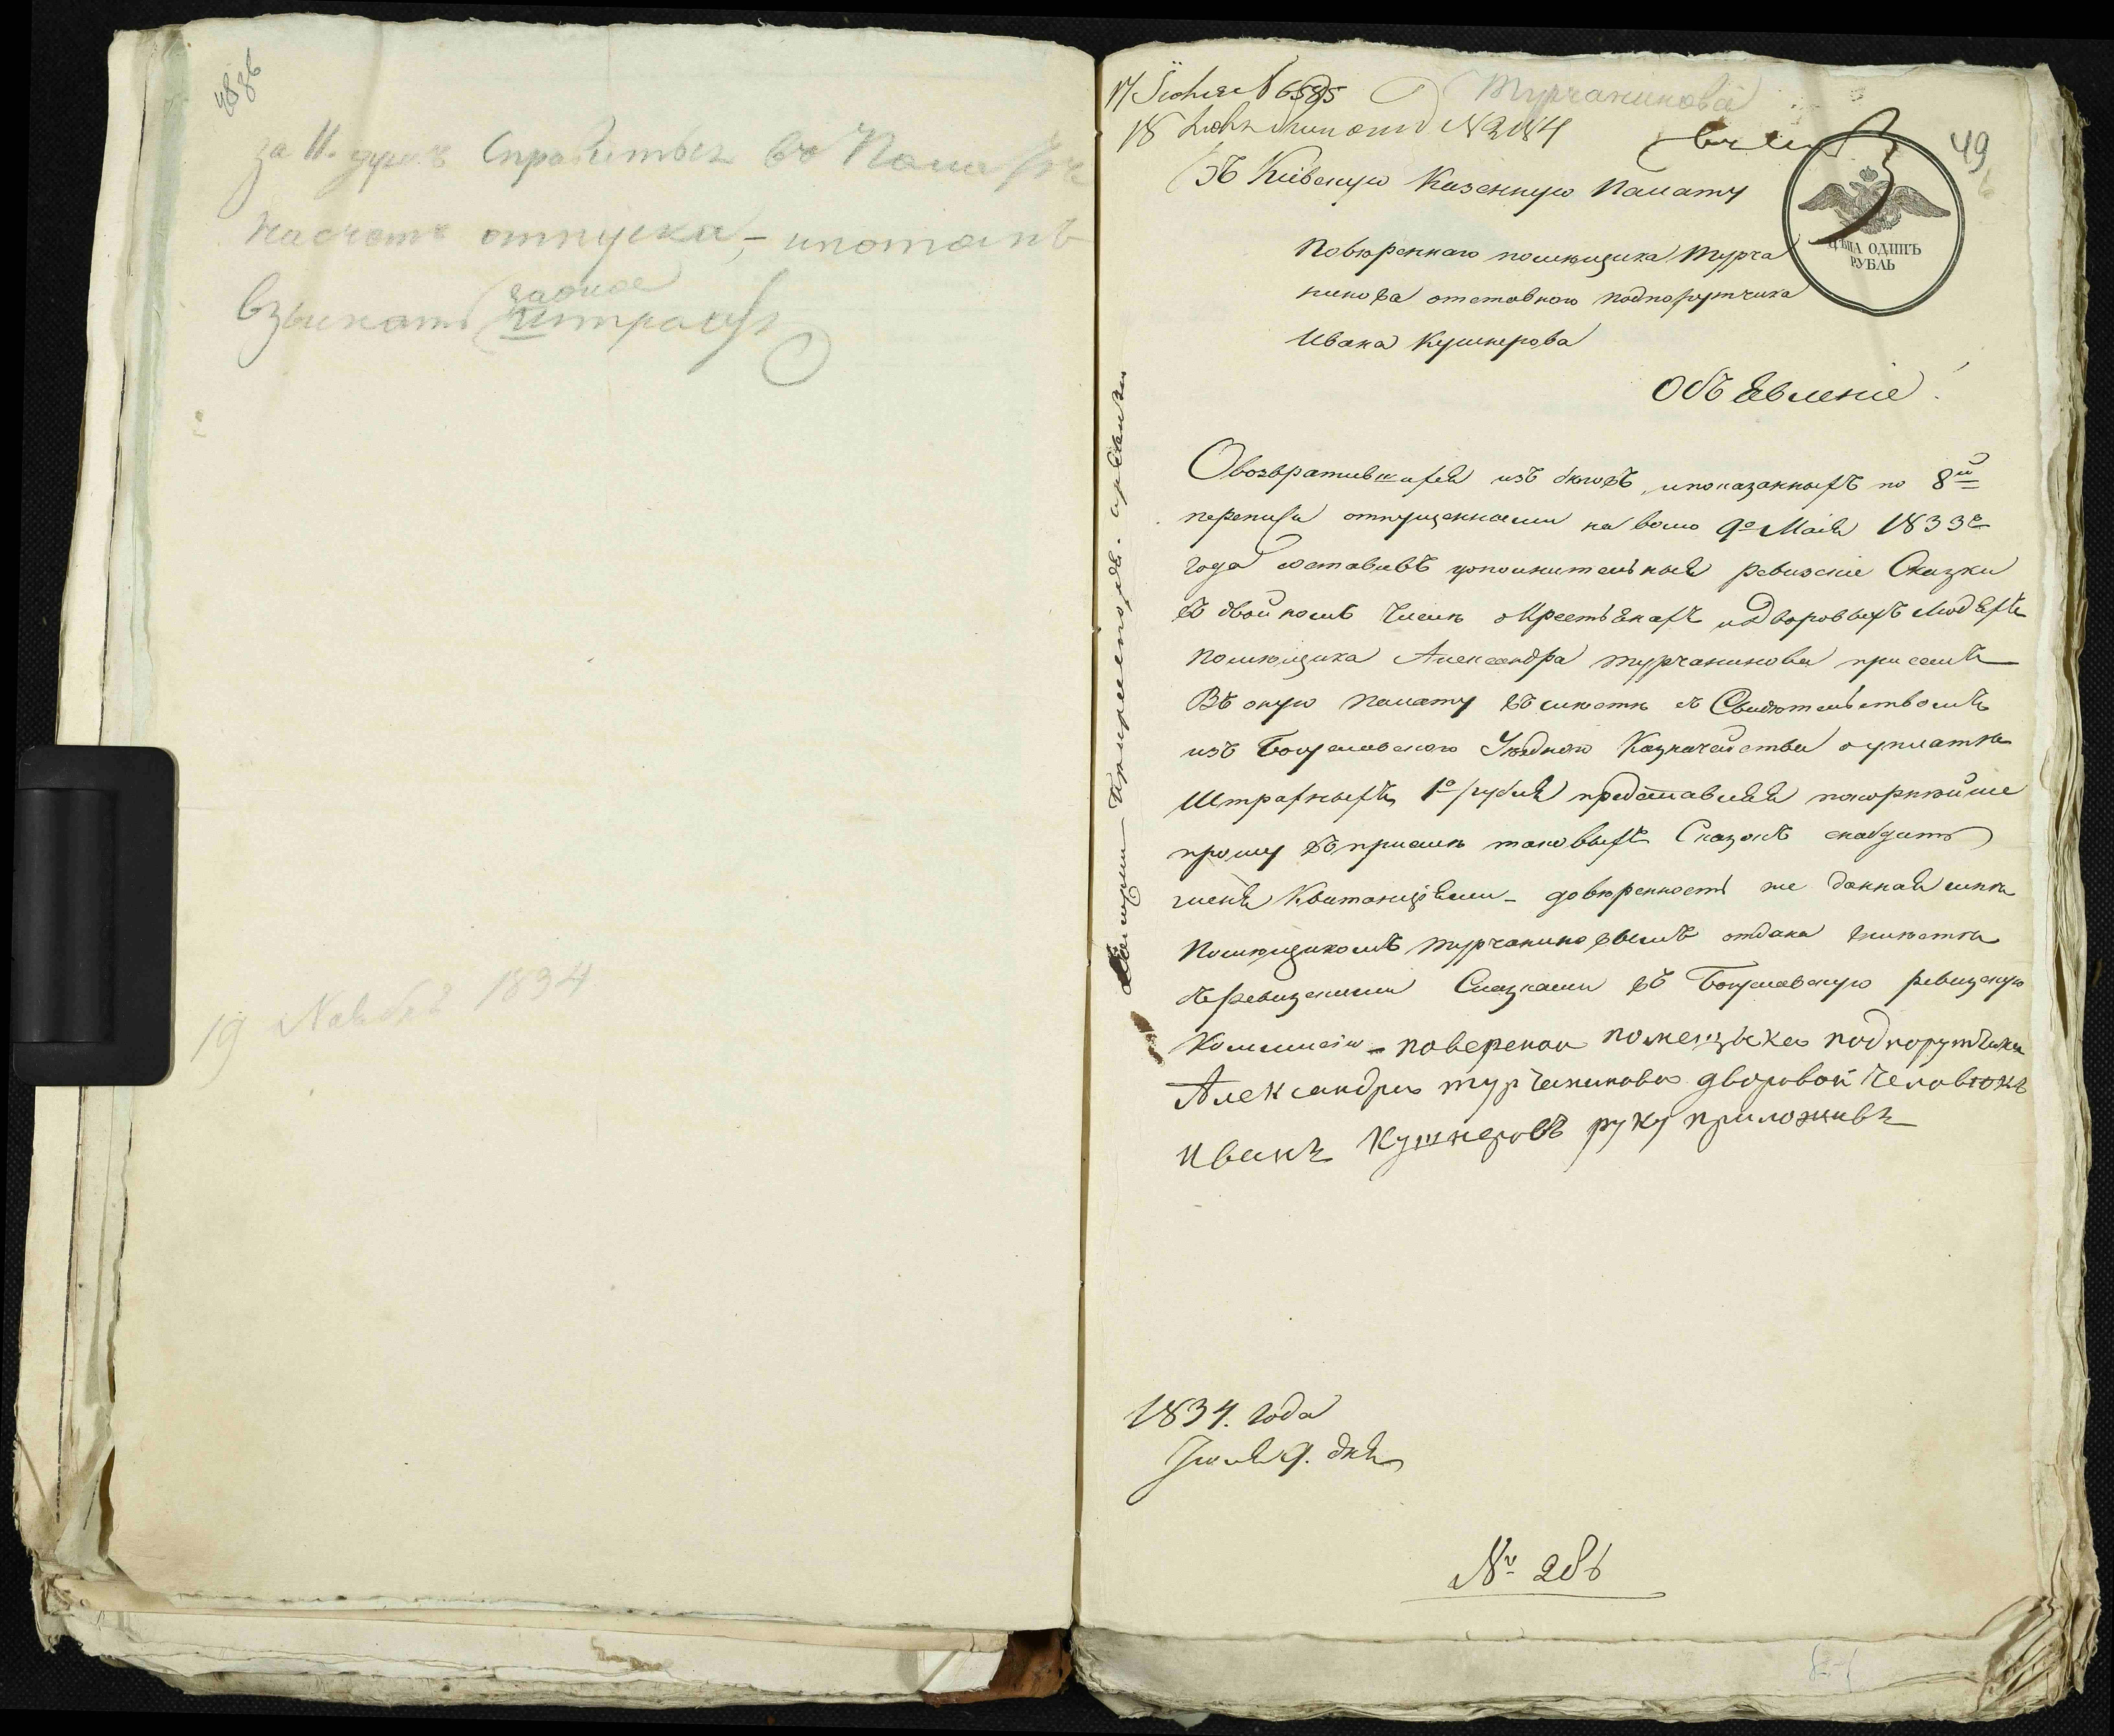 48 об
за 11. душъ справитьса въ Палатѣ
насчетъ отпуска, – ипотомъ
взыскать штрафъ
19 Ноября 1834
17 Іюля N 6585
Турчанинова
18 Июля N 2084
49
Въ Кіевскую Казенную Палату
ЦѢНА ОДИНЪ
РУБЛЬ
Повѣреннаго помѣщика Турча
нинова отставного подпорутчика
Ивана Кушнерова
Объявленіе
Овозвратившихся изъ бѣговъ, ипоказанныхъ по 8й
переписи отпущенными на волю 9го Мая 1833го
года составивъ дополнительныя ревизские Сказки
въ двойномъ числѣ окрестьянахъ идворовыхъ людяхъ
помѣщика Александра Турчанинова присемъ
Въ оную палату вмѣстѣ съ Свидѣтельствомъ
изъ Богуславского Уѣзднаго Казначейства оуплатѣ
Штрафныхъ 1го рубля представляя покорнѣйше
прошу въ приемѣ таковыхъ Сказокъ снабдить
меня Квитанціями – довѣренность же данная мнѣ
Помѣщикомъ Турчаниновымъ отдана вмѣстѣ
съревизскими Сказками въ Богуславскую ревизскую
Коммисію – поверенои помещыка подпорутчика
Александра турчанинова дворовой человѣкъ
Иванъ Кушнеровъ руку приложивъ
1834. года
Іюля 9. дня
№ 286